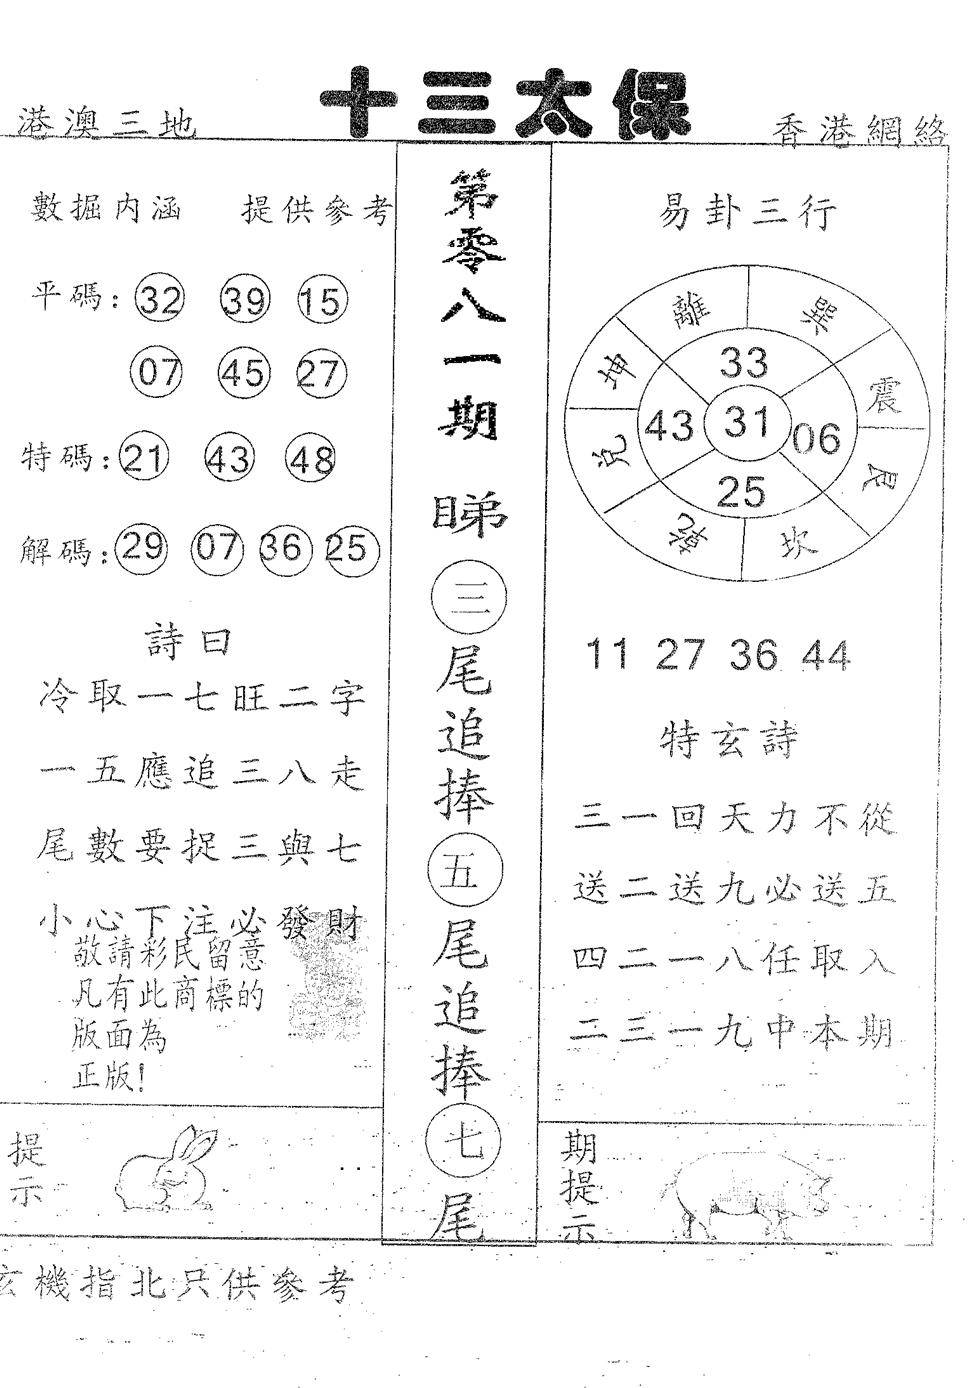 十三太保
港澳三地
香港網絡
數掘内涵 提供參考
平碼: 32 39 15
07 45 27
特碼: 21 43 48
解碼: 29 07 36 25
詩曰
冷取一七旺二字
一五應追三八走
尾數要捉三與七
小心下注必發財
敬請彩民留意
凡有此商標的
版面為
正版!
提示
第零八一期
睇
三
尾
追
捧
五
尾
追
捧
七
尾
易卦三行
離 巽
坤 震
兌 艮
乾 坎
33
43 31 06
25
11 27 36 44
特玄詩
三一回天力不從
送二送九必送五
四二一八任取入
二三一九中本期
期提示
玄機指北只供參考